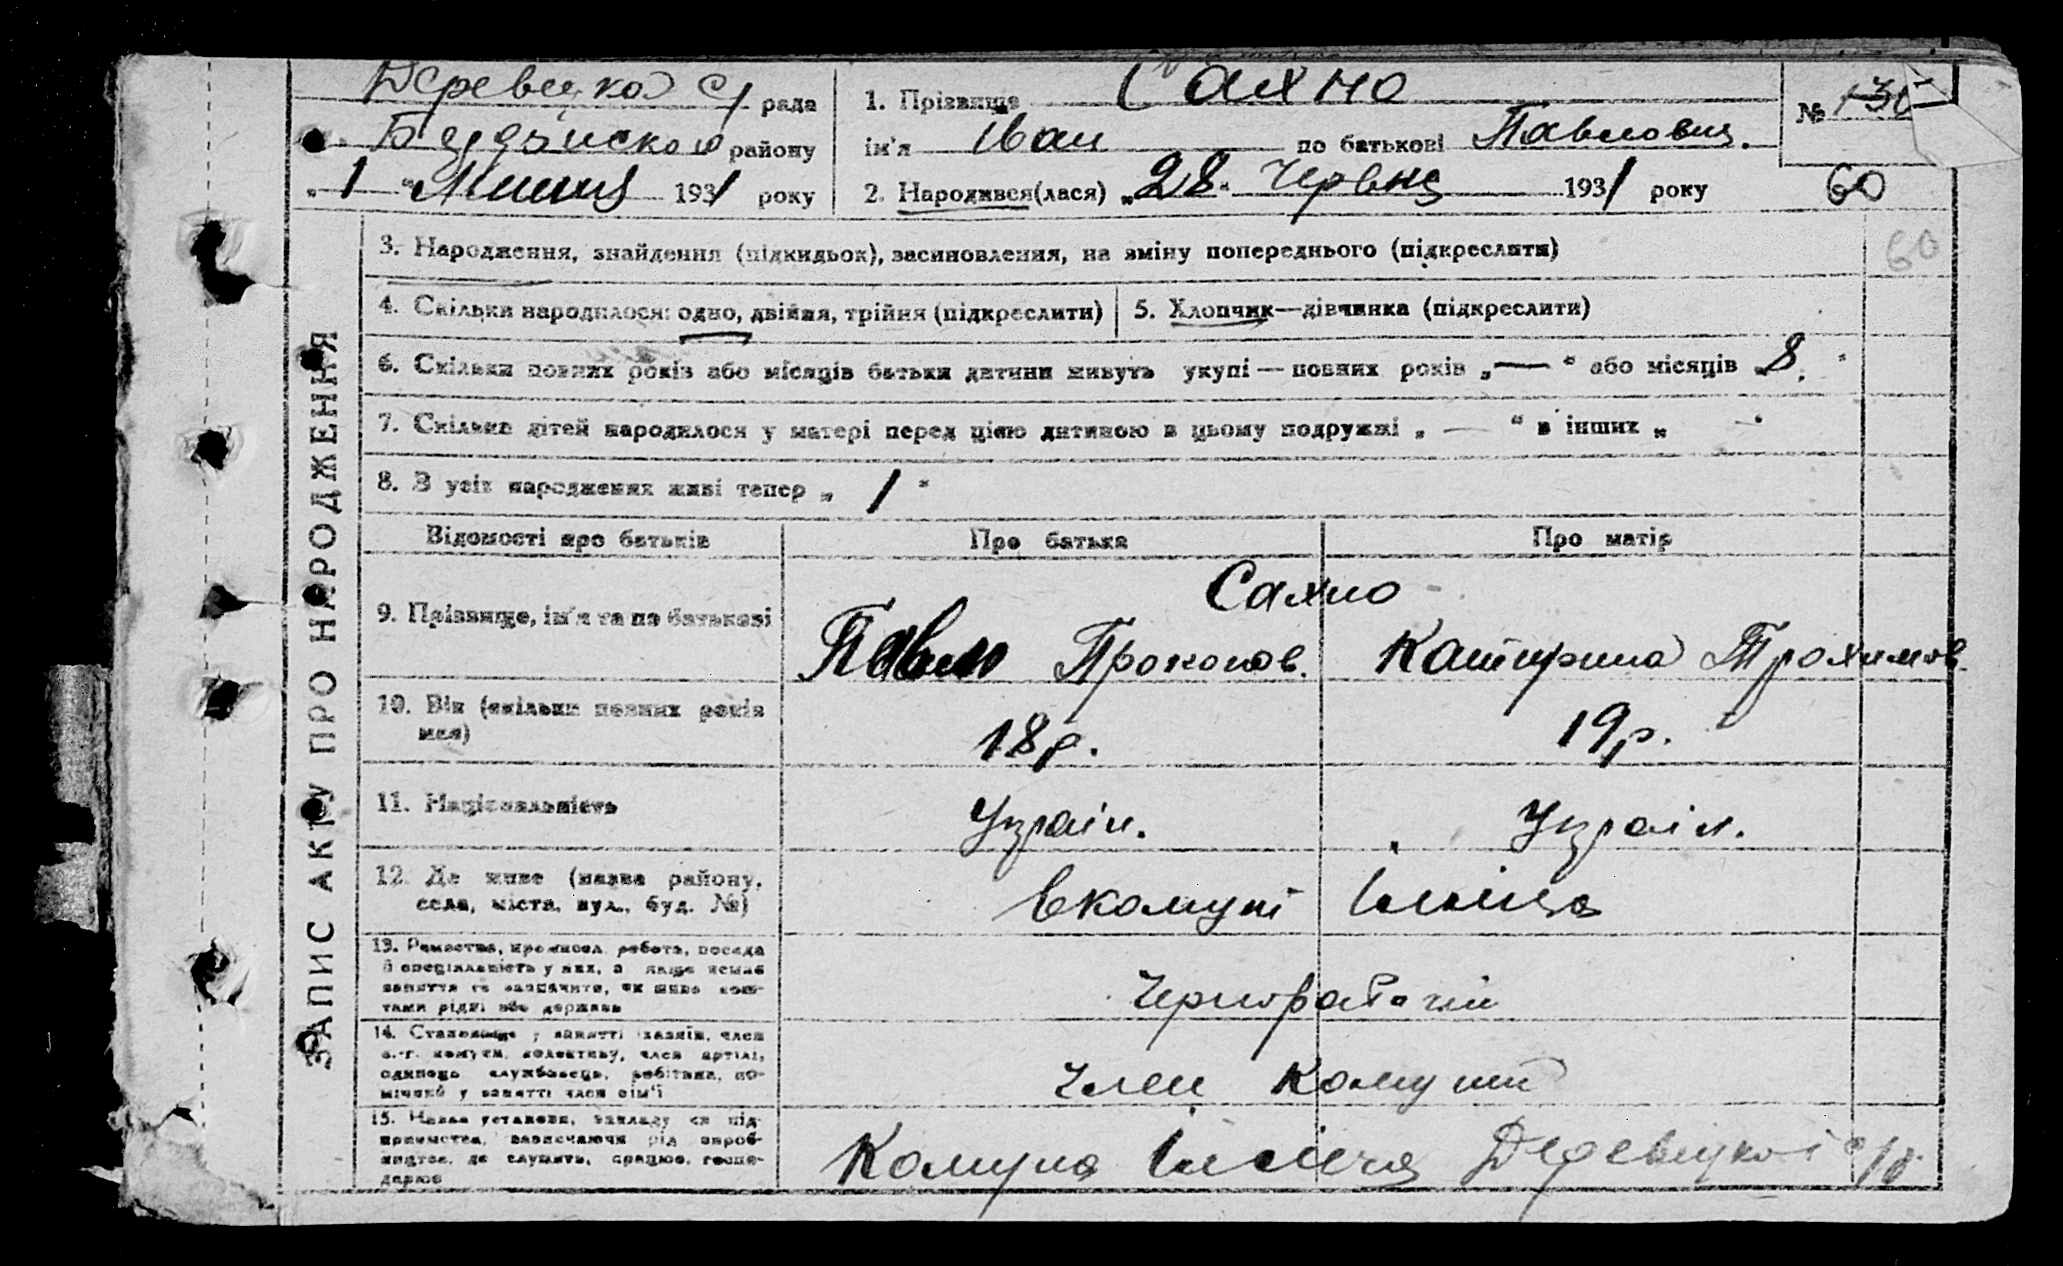 Деревецка с/рада
району
„1“ Липня 1931 року
1. Прізвище Сахно
ім'я Іван по батькові Павлович.
№ 130
2. Народився(лася) „28“ Червня 1931 року
60
60
ЗАПИС АКТУ ПРО НАРОДЖЕННЯ
3. Народження, знайдення (підкидьок), засиновлення, на зміну попереднього (підкреслити)
4. Скільки народилося: одно, двійня, трійня (підкреслити)
5. Хлопчик—дівчинка (підкреслити)
6. Скільки повних років або місяців батьки дитини живуть укупі — повних років „—“ або місяців „8“
7. Скільки дітей народилося у матері перед цією дитиною в цьому подружжі „—“ в інших „ “
8. З усіх народжених живі тепер „1“
Відомості про батьків
Про батька
Про матір
9. Прізвище, ім'я та по батькові
Сахно
Павло Прокопов.
Катирина Трохимов.
10. Вік (скільки повних років
має)
18 р.
19 р.
11. Національність
Україн.
Україн.
12. Де живе (назва району,
села, міста, вул., буд. №)
В комуні Ілліча
13. Ремество, промисел, робота, посада
й спеціяльність у них, а якщо немає
заняття то зазначити, чи живе кош-
тами рідні або держави
Чернорабочий
14. Становище у занятті: хазяїн, член
с.-г. комуни, колективу, член артілі,
одинець, службовець, робітник, по-
мічний у занятті член сім'ї
Член Комуни
15. Назва установи, закладу чи під-
приємства, зазначаючи рід вироб-
ництва, де служить, працює, госпо-
дарює
Комуна Ілліча Деревецкої с/р